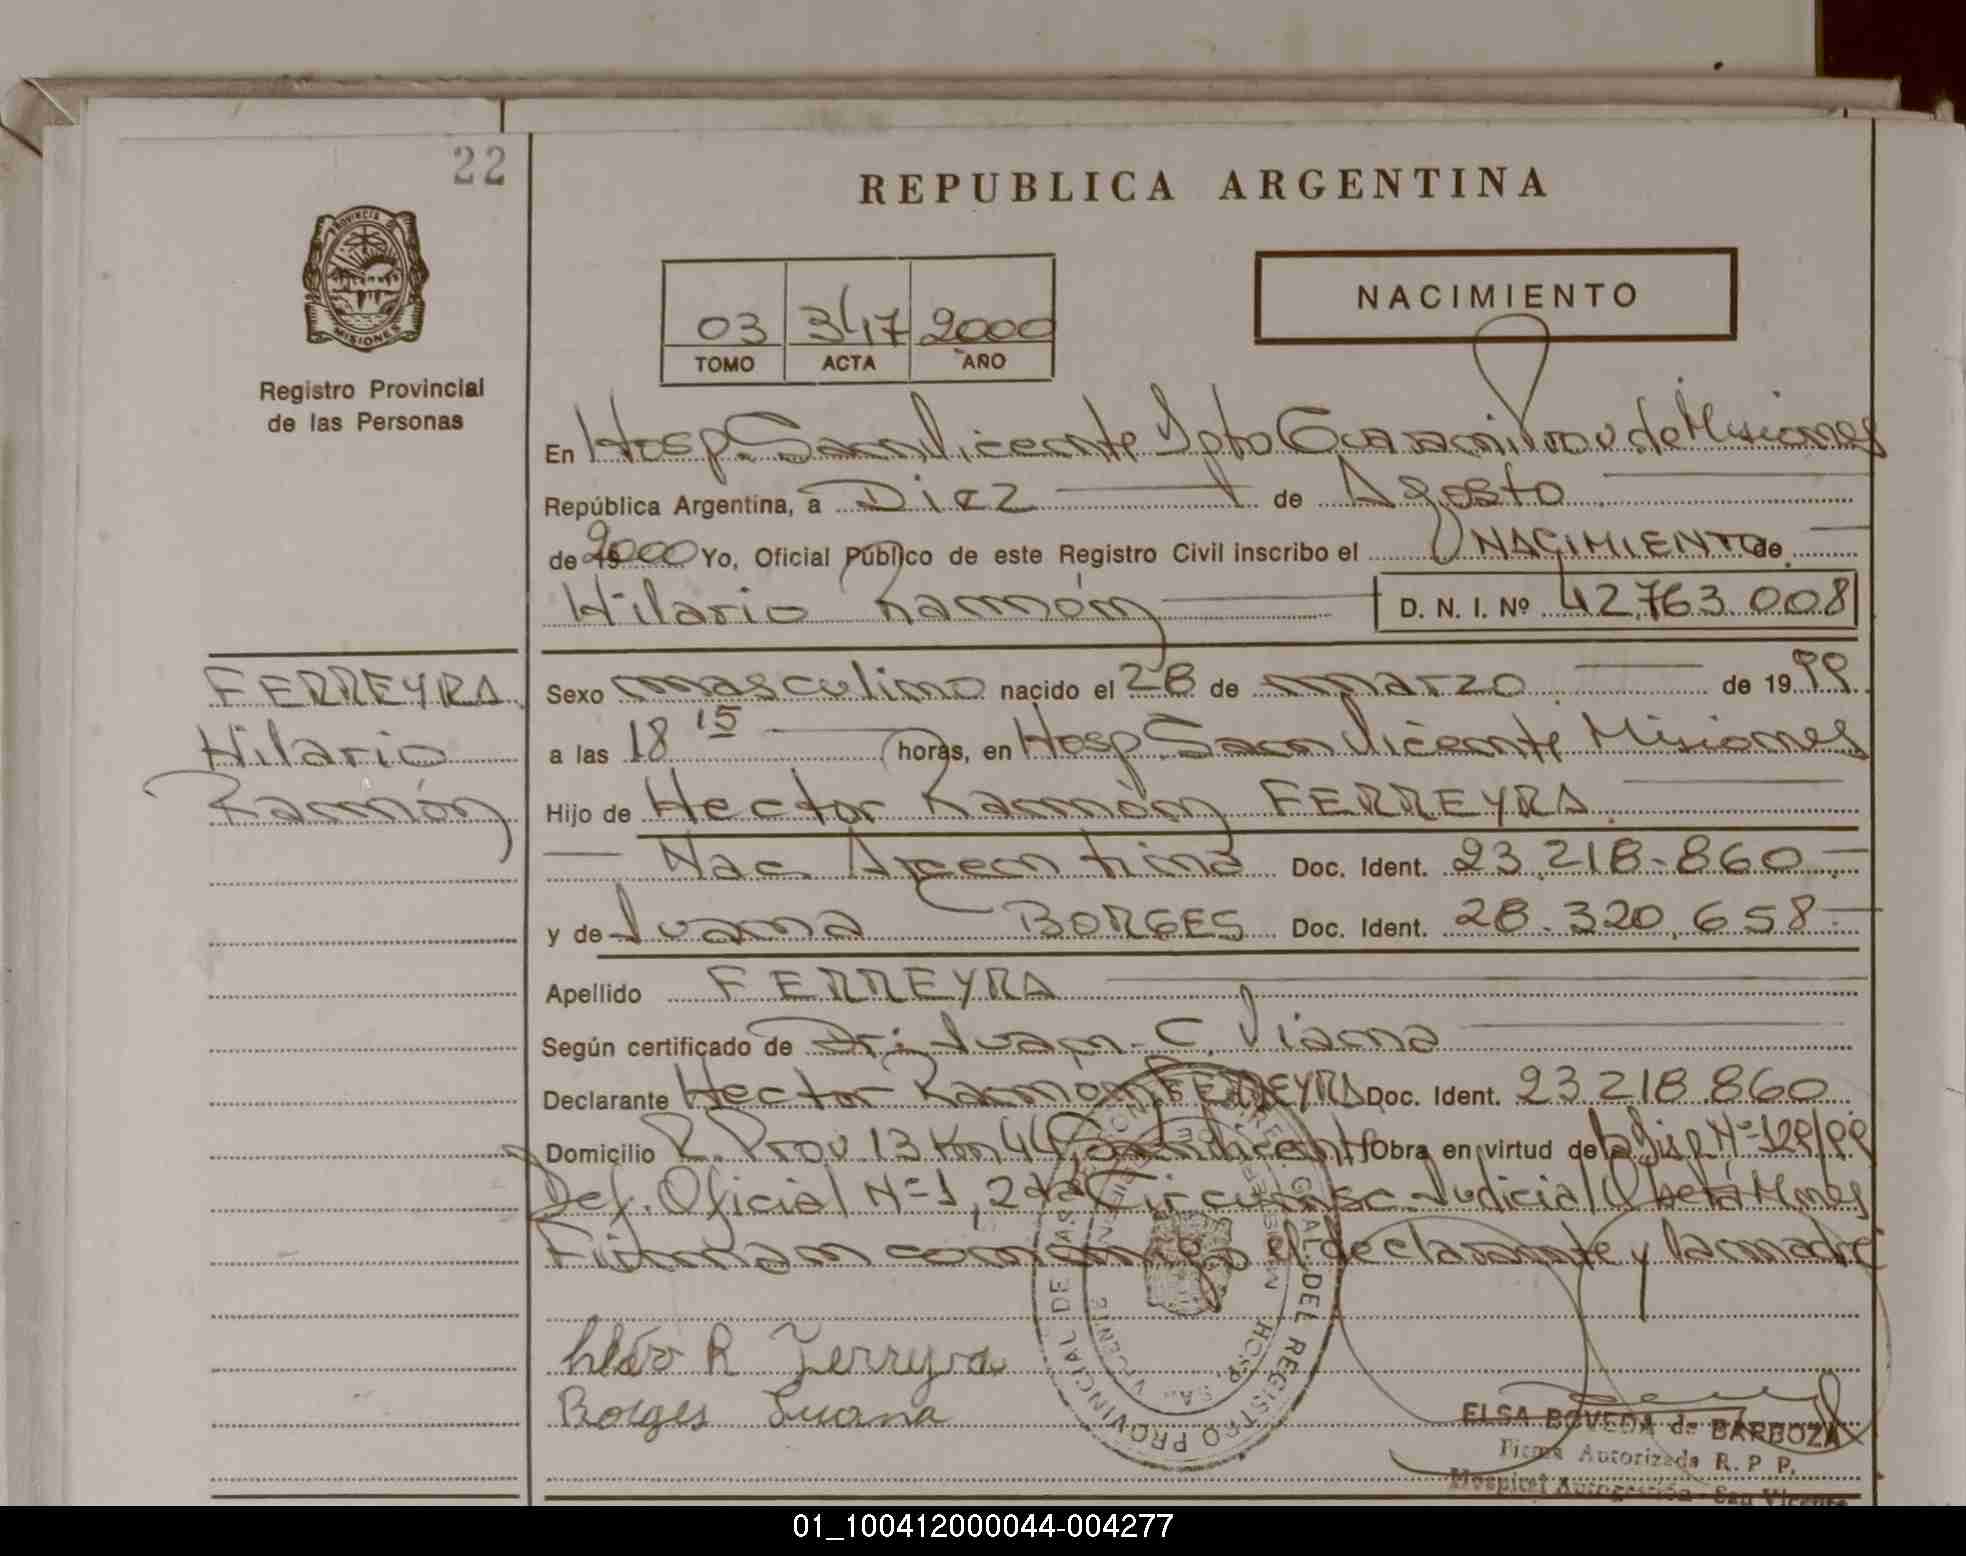 22
REPUBLICA ARGENTINA
PROVINCIA DE MISIONES
Registro Provincial
de las Personas
NACIMIENTO
03 347 2000
TOMO ACTA AÑO
En Hosp. San Vicente Dpto Guaraní Prov de Misiones
República Argentina, a Diez de Agosto
de 2000 Yo, Oficial Público de este Registro Civil inscribo el NACIMIENTO de
Hilario Ramón D. N. I. Nº 42.763.008
FERREYRA
Hilario
Ramón
Sexo masculino nacido el 28 de marzo de 1999.
a las 18 15 horas, en Hosp. San Vicente Misiones
Hijo de Hector Ramón FERREYRA
Nac. Argentina Doc. Ident. 23.218.860.-
y de Juana BORGES Doc. Ident. 28.320.658.-
Apellido FERREYRA
Según certificado de Dr. Juan C. Viana
Declarante Hector Ramón FERREYRA Doc. Ident. 23.218.860
Domicilio R. Prov 13 Km 44 San Vicente Obra en virtud de Nº 129/99
Def. Oficial Nº 1, 2da Circunsc. Judicial Oberá Mnes
Firman conmigo el declarante y la madre
R Ferreyra
Borges Juana
PROVINCIAL DE LAS
GRAL. DEL REGISTRO
HOSP. SA. VICENTE
ELSA BOVEDA de BARBOZA
Firma Autorizada R. P. P.
Hospital Autogestión - San Vicente
01_100412000044-004277